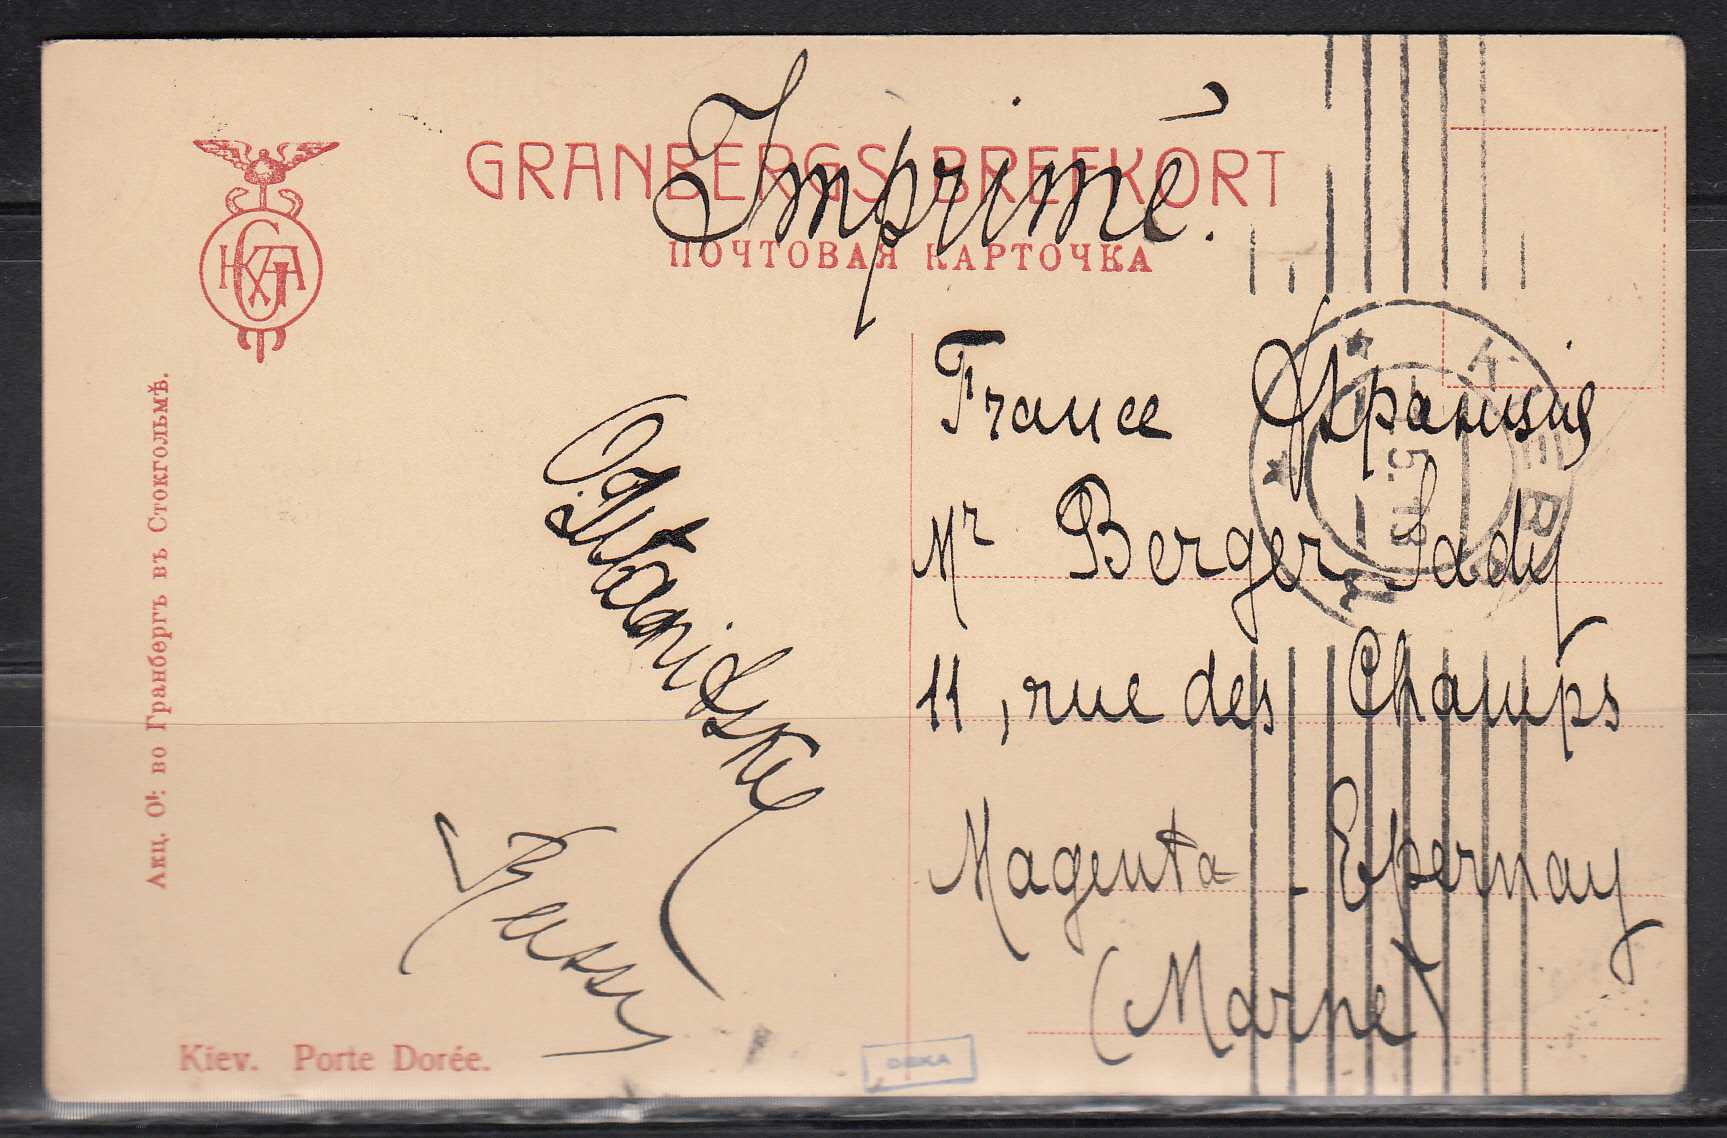 Imprimé.
GRANBERGS BREFKORT
ПОЧТОВАЯ КАРТОЧКА
Акц. О: во Гранбергъ въ Стокгольмѣ.
France Франція
Mr Berger Sady
11, rue des Champs
Magenta - Epernay
(Marne)
КІЕВ
5.13
Kiev. Porte Dorée.